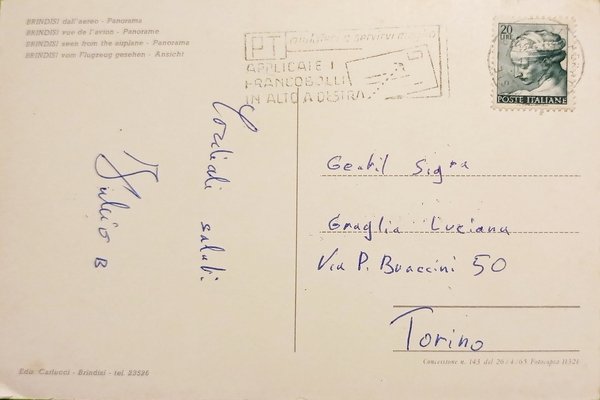 BRINDISI dall'aereo - Panorama
BRINDISI vue de l'avion - Panorama
BRINDISI seen from the airplane - Panorama
BRINDISI vom Flugzeug gesehen - Ansicht
PT
APPLICATE I
FRANCOBOLLI
IN ALTO A DESTRA
20
LIRE
POSTE ITALIANE
Cordiali saluti
Gentil Sigra
Graglia Luciana
Via P. Braccini 50
Torino
Concessione n. 143 del 26/4/65 Fotocapra 11321
Ediz. Carlucci - Brindisi - tel. 23526